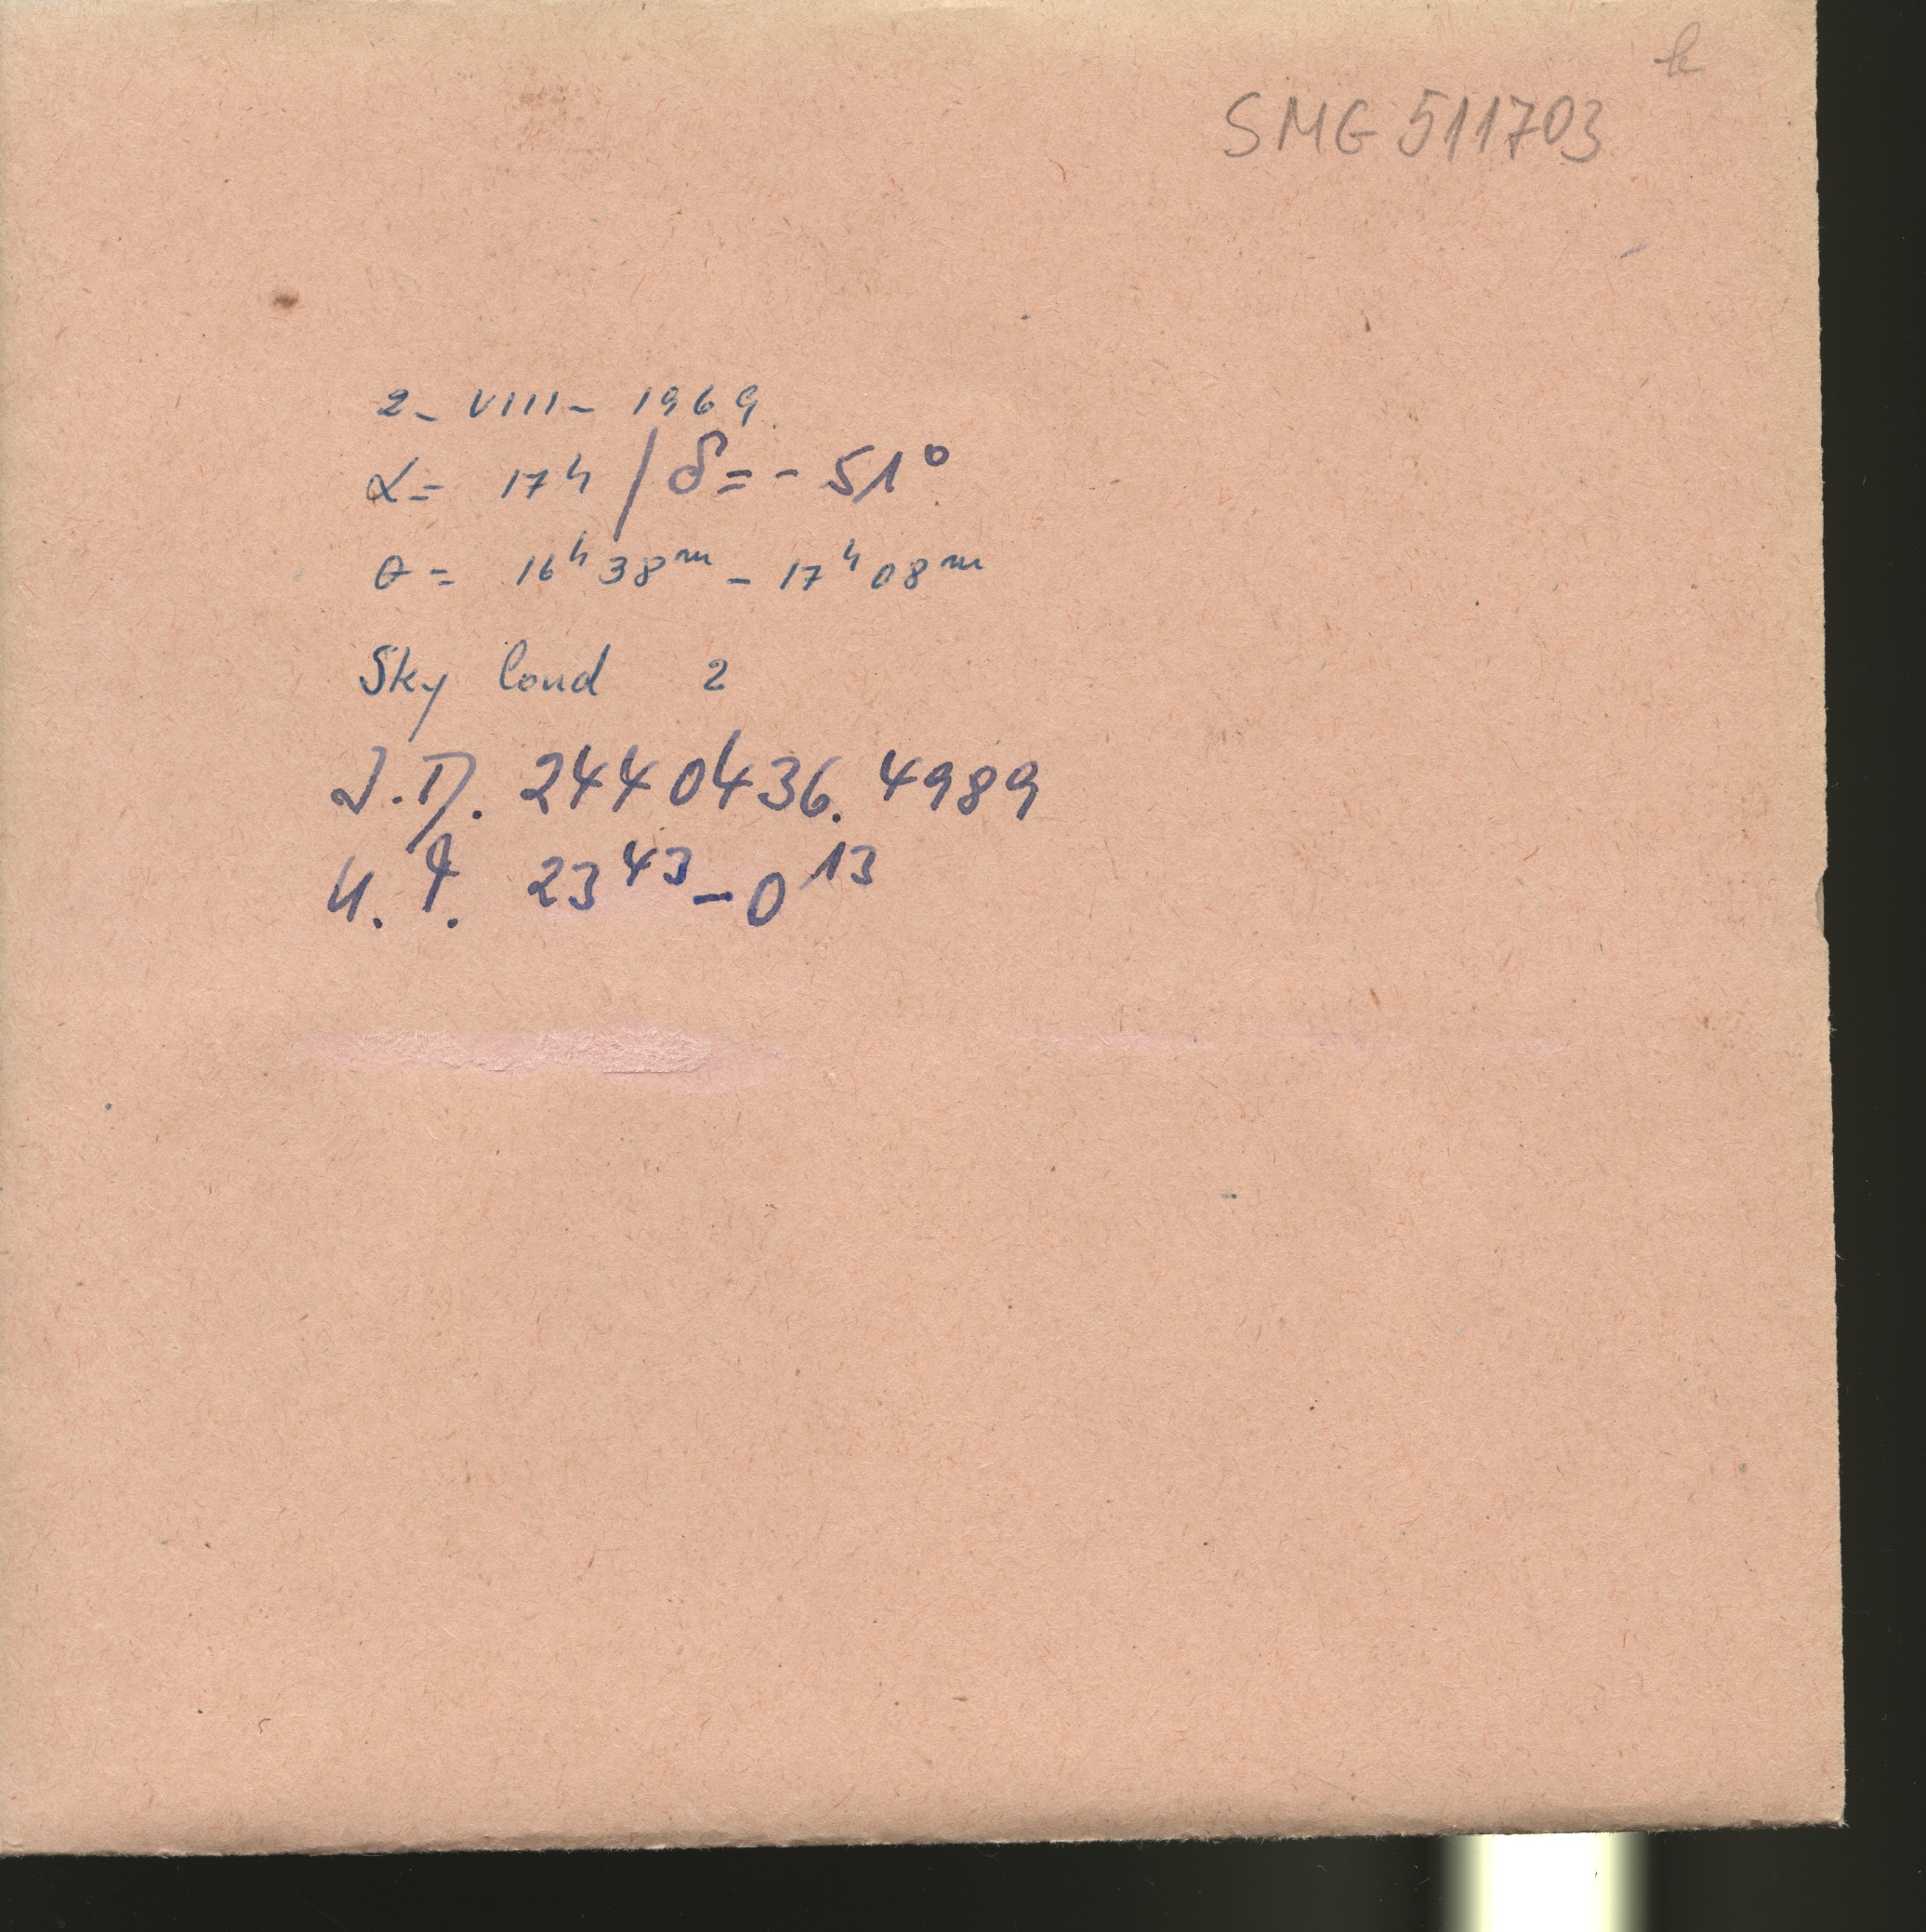 k
SMG 511703
2- VIII- 1969.
α= 17ʰ / δ= - 51°
θ= 16ʰ38ᵐ - 17ʰ08ᵐ
Sky Cond 2
J.D. 2440436.4989
U.T. 23⁴³-0¹³